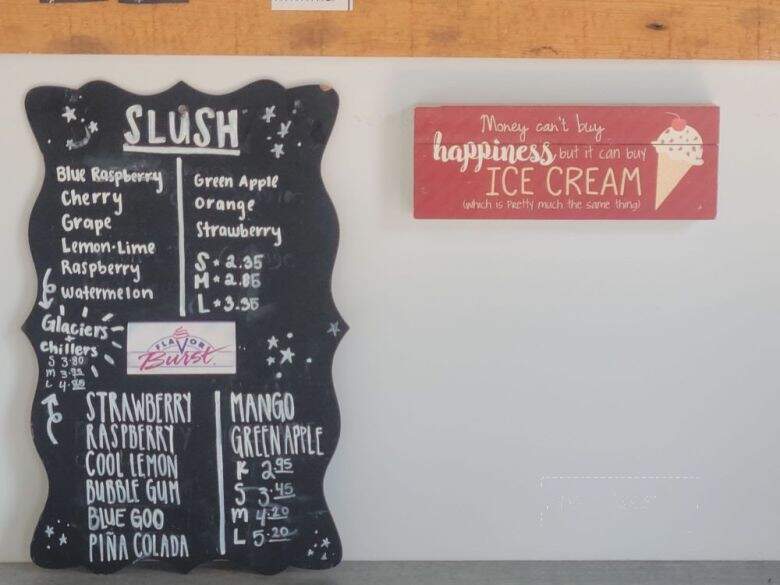 SLUSH
Blue Raspberry
Cherry
Grape
Lemon-Lime
Raspberry
Watermelon
Green Apple
Orange
Strawberry
S * 2.35
M * 2.85
L * 3.35
Glaciers
+
chillers
S 3.80
M
L
FLAVOR
Burst
STRAWBERRY
RASPBERRY
COOL LEMON
BUBBLE GUM
BLUE GOO
PIÑA COLADA
MANGO
GREEN APPLE
K 2.95
S 3.45
M 4.20
L 5.20
Money can't buy
happiness but it can buy
ICE CREAM
(which is pretty much the same thing)